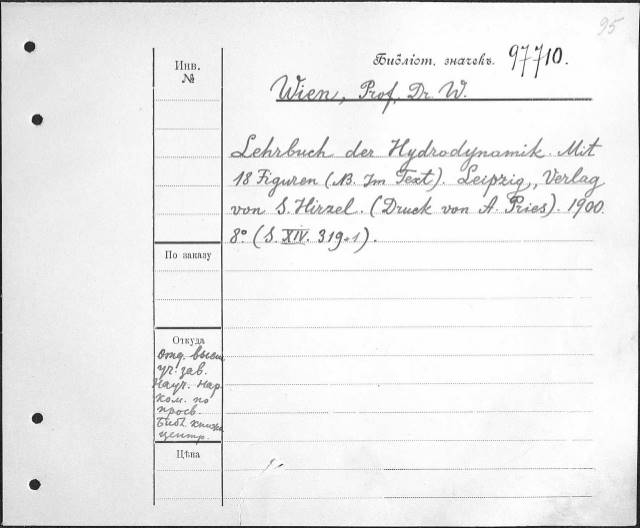 95
Инв.
№
Библіот. значекъ. 97710.
Wien, Prof. Dr. W.
Lehrbuch der Hydrodynamik. Mit
18 Figuren (NB. Im Text). Leipzig, Verlag
von S. Hirzel. (Druck von A. Pries). 1900.
8° (S. XIV. 319+1).
По заказу
Откуда
Отд. высш.
уч. зав.
Науч. нар.
ком. по
просв.
Библ. книжн.
центр.
Цѣна